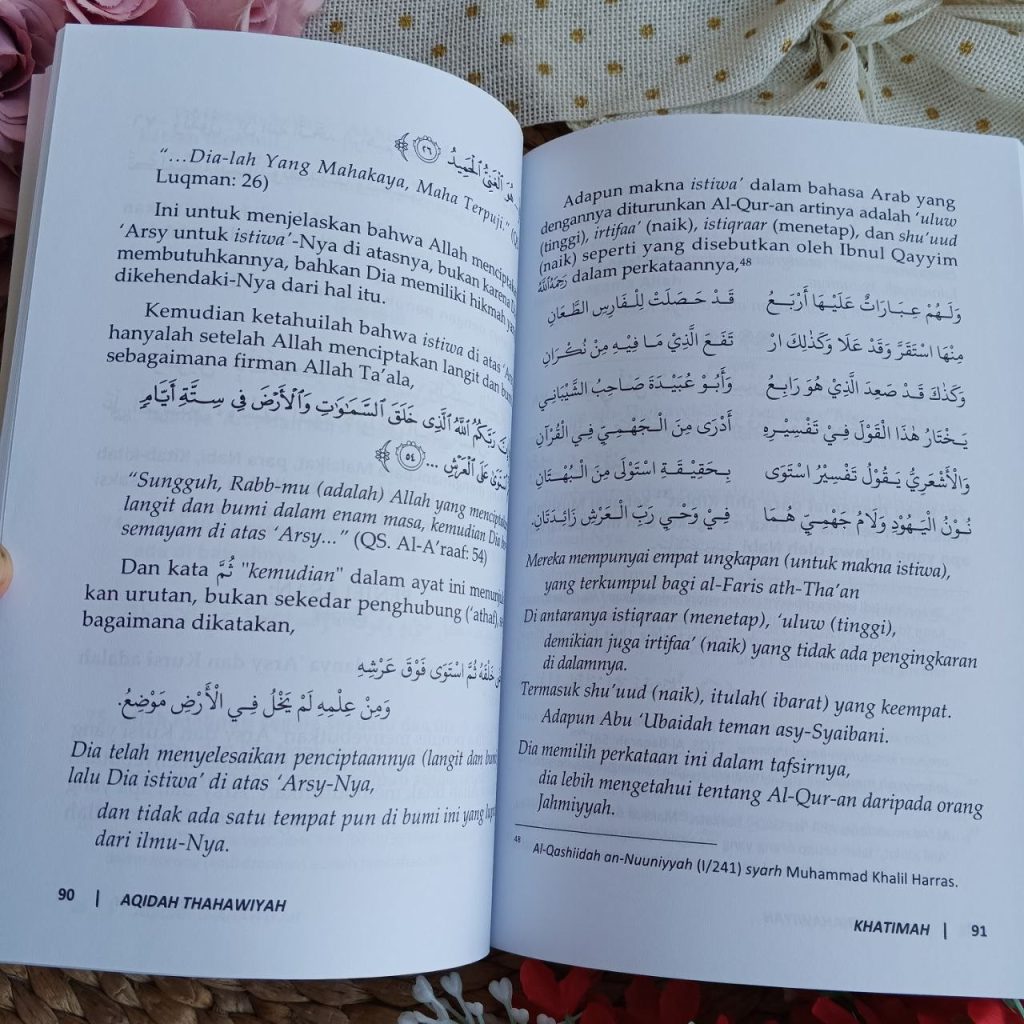 هُوَ ٱلْغَنِيُّ ٱلْحَمِيدُ ٢٦
“...Dia-lah Yang Mahakaya, Maha Terpuji.” (QS.
Luqman: 26)
Ini untuk menjelaskan bahwa Allah menciptak
‘Arsy untuk istiwa’-Nya di atasnya, bukan karena D
membutuhkannya, bahkan Dia memiliki hikmah ya
dikehendaki-Nya dari hal itu.
Kemudian ketahuilah bahwa istiwa di atas ‘Ars
hanyalah setelah Allah menciptakan langit dan bum
sebagaimana firman Allah Ta’ala,
رَبَّكُمُ ٱللَّهُ ٱلَّذِى خَلَقَ ٱلسَّمَٰوَٰتِ وَٱلْأَرْضَ فِى سِتَّةِ أَيَّامٍ
عَلَى ٱلْعَرْشِ ... ٥٤
“Sungguh, Rabb-mu (adalah) Allah yang menciptak
langit dan bumi dalam enam masa, kemudian Dia
semayam di atas ‘Arsy...” (QS. Al-A’raaf: 54)
Dan kata ثُمَّ "kemudian" dalam ayat ini menunjuk
kan urutan, bukan sekedar penghubung (‘athaf), se
bagaimana dikatakan,
خَلْقَهُ ثُمَّ اسْتَوَى فَوْقَ عَرْشِهِ
وَمِنْ عِلْمِهِ لَمْ يَخْلُ فِي الْأَرْضِ مَوْضِعُ.
Dia telah menyelesaikan penciptaannya (langit dan bumi
lalu Dia istiwa’ di atas ‘Arsy-Nya,
dan tidak ada satu tempat pun di bumi ini yang lupu
dari ilmu-Nya.
90 | AQIDAH THAHAWIYAH
Adapun makna istiwa’ dalam bahasa Arab yang
dengannya diturunkan Al-Qur-an artinya adalah ‘uluw
(tinggi), irtifaa’ (naik), istiqraar (menetap), dan shu’uud
(naik) seperti yang disebutkan oleh Ibnul Qayyim
رَحِمَهُ اللهُ dalam perkataannya,48
وَلَهُمْ عِبَارَاتٌ عَلَيْهَا أَرْبَعُ قَدْ حَصَلَتْ لِلْفَارِسِ الطَّعَانِ
مِنْهَا اسْتَقَرَّ وَقَدْ عَلَا وَكَذَلِكَ ارْ تَفَعَ الَّذِيْ مَا فِيْهِ مِنْ نُكْرَانِ
وَكَذَكَ قَدْ صَعِدَ الَّذِيْ هُوَ رَابِعُ وَأَبُوْ عُبَيْدَةَ صَاحِبُ الشَّيْبَانِي
يَخْتَارُ هٰذَا الْقَوْلَ فِيْ تَفْسِيْرِهِ أَدْرَى مِنَ الْجَهْمِيّ فِي الْقُرْآنِ
وَالْأَشْعَرِيُّ يَقُوْلُ تَفْسِيْرُ اسْتَوَى بِحَقِيْقَةِ اسْتَوْلَى مِنَ الْبُهْتَانِ
نُوْنُ الْيَهُوْدِ وَلَامُ جَهْمِيّ هُمَا فِيْ وَحْيِ رَبِّ الْعَرْشِ زَائِدَتَانِ.
Mereka mempunyai empat ungkapan (untuk makna istiwa),
yang terkumpul bagi al-Faris ath-Tha’an
Di antaranya istiqraar (menetap), ‘uluw (tinggi),
demikian juga irtifaa’ (naik) yang tidak ada pengingkaran
di dalamnya.
Termasuk shu’uud (naik), itulah( ibarat) yang keempat.
Adapun Abu ‘Ubaidah teman asy-Syaibani.
Dia memilih perkataan ini dalam tafsirnya,
dia lebih mengetahui tentang Al-Qur-an daripada orang
Jahmiyyah.
48 Al-Qashiidah an-Nuuniyyah (I/241) syarh Muhammad Khalil Harras.
KHATIMAH | 91